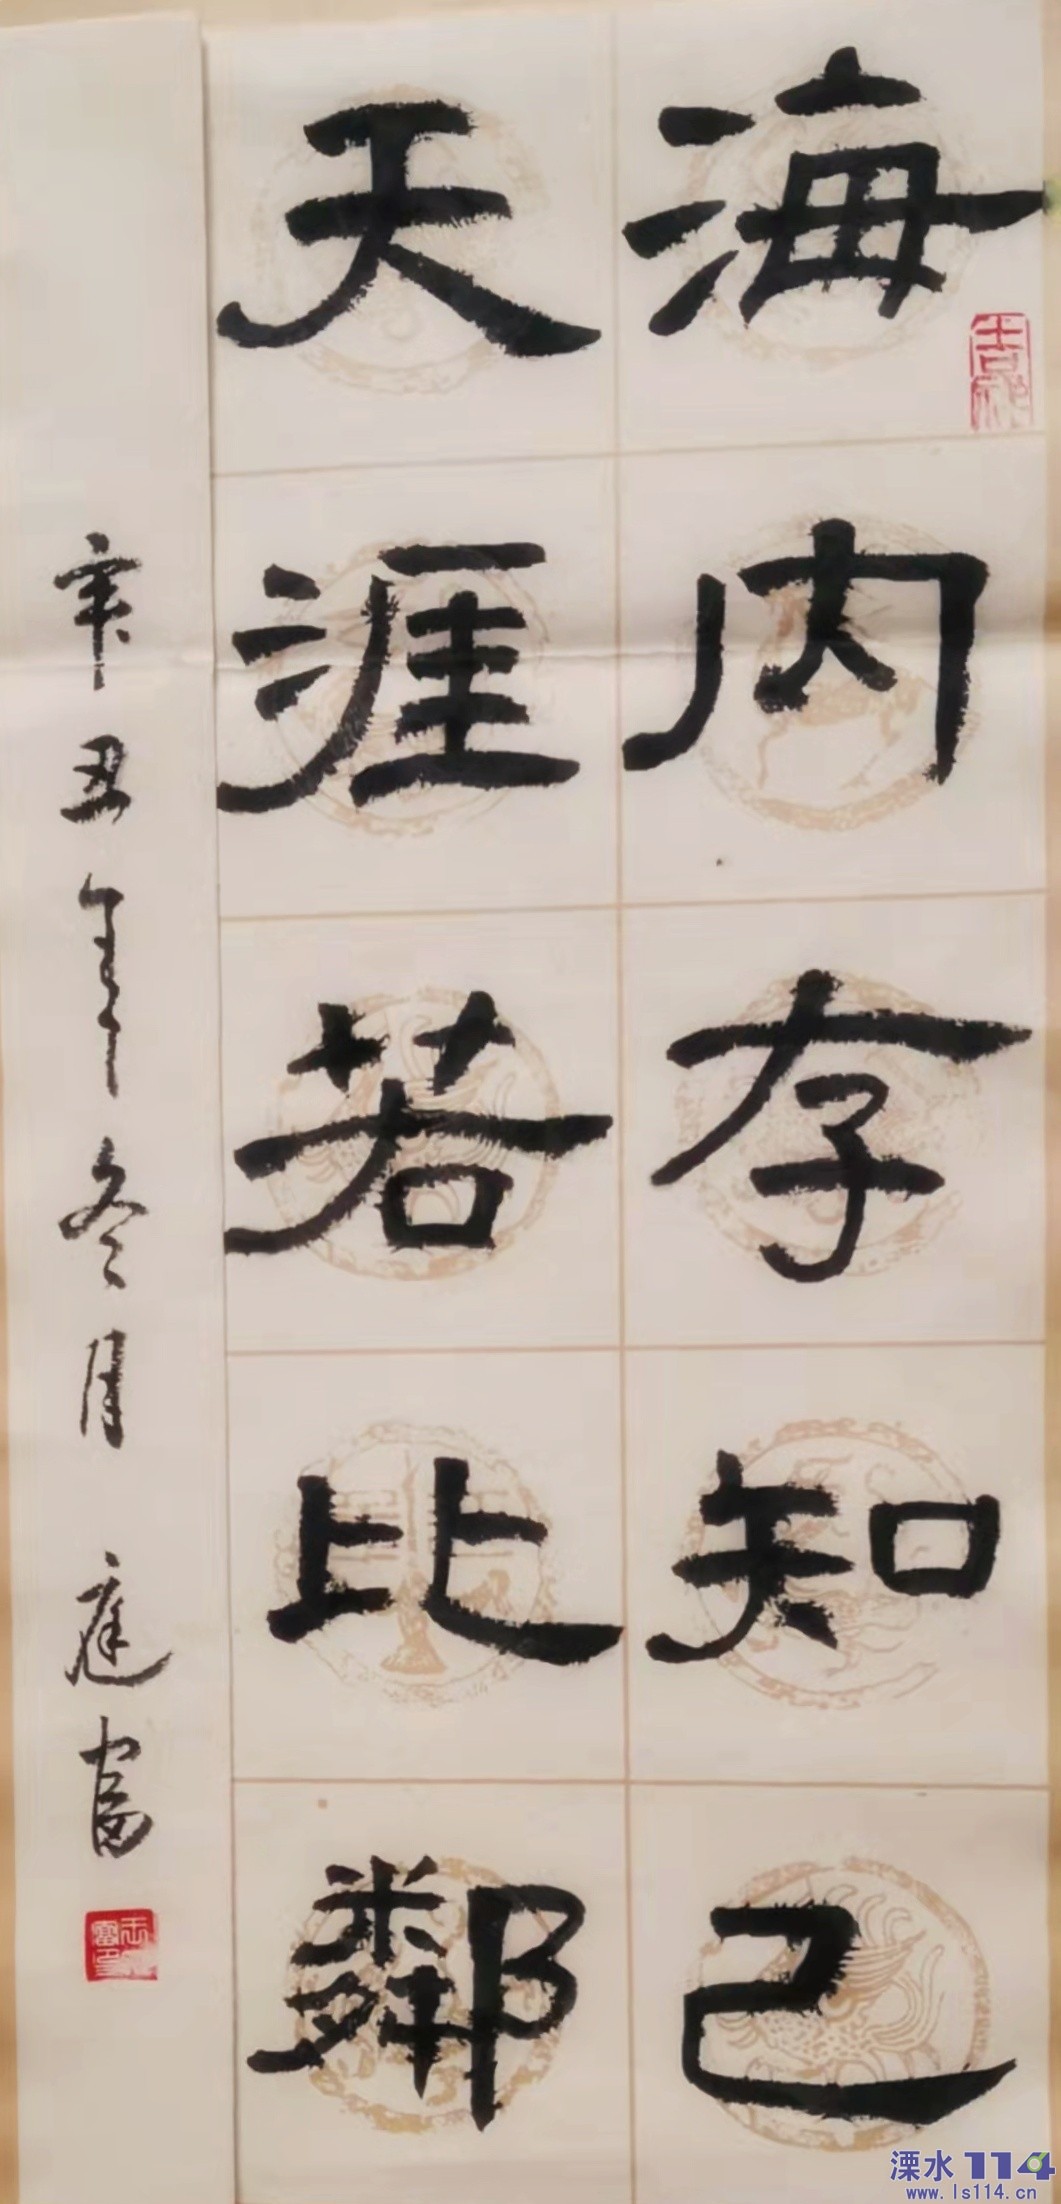 海内存知己
天涯若比鄰
辛丑年冬月 庭富
溧水114
www.ls114.cn